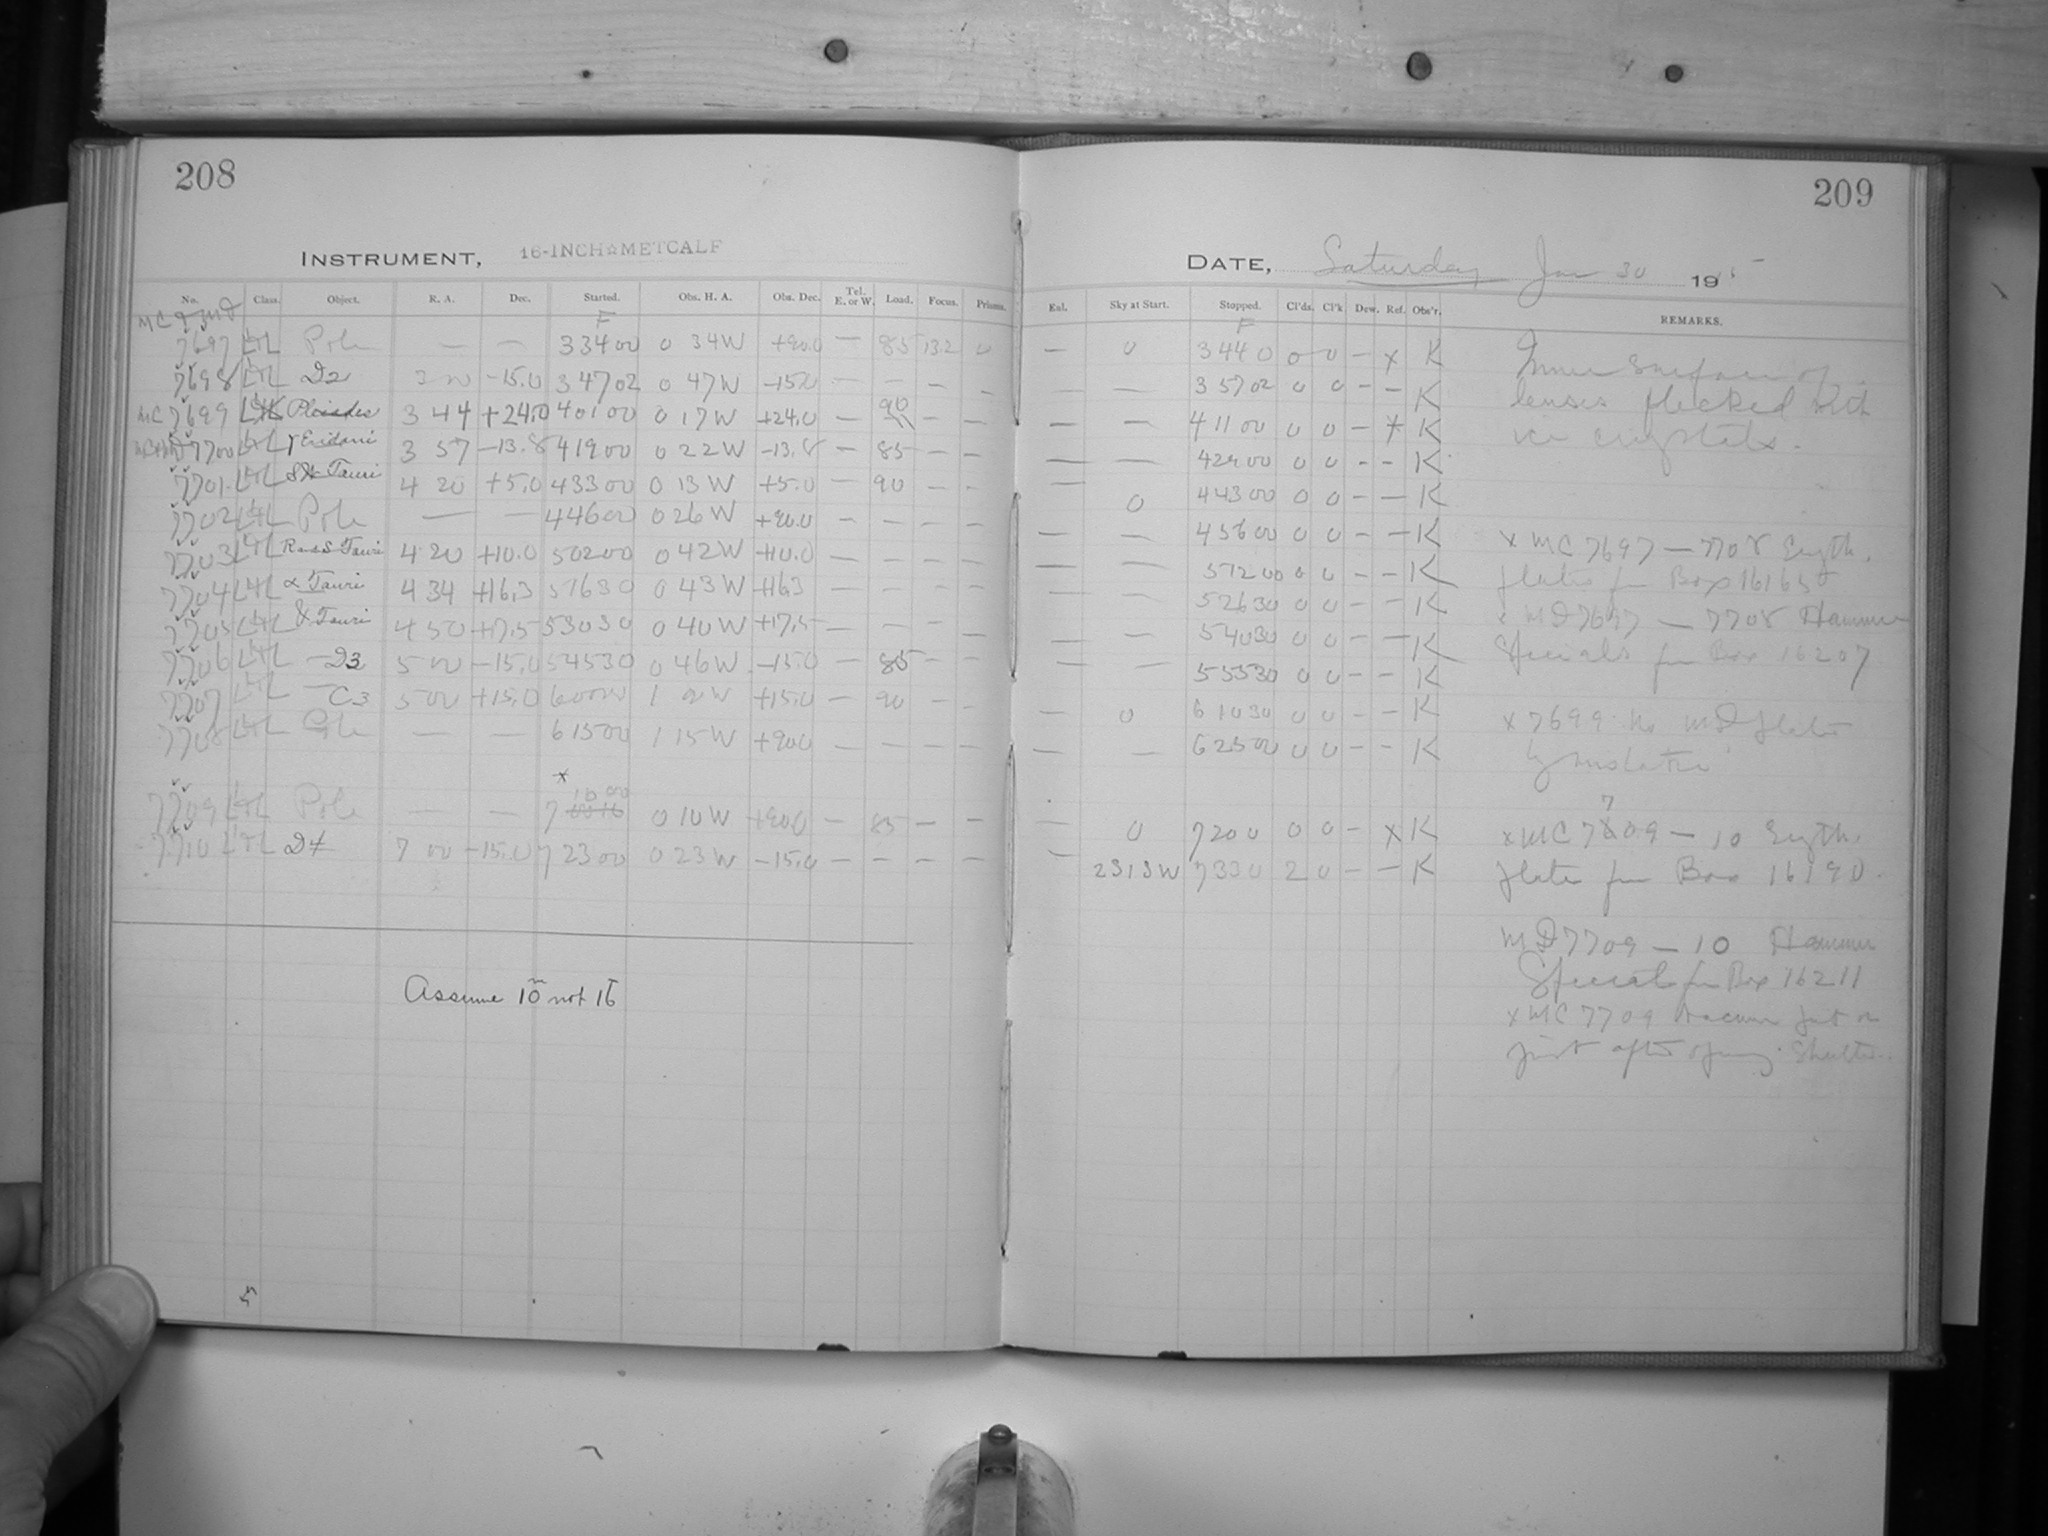 208
INSTRUMENT, 16-INCH☆METCALF
No. Class. Object. R. A. Dec. Started. Obs. H. A. Obs. Dec. Tel. E. or W. Load. Focus. Prisms.
MC & MD F
7697 Pole — — 3 34 00 0 34 W +90.0 — 85 13.2 0
7698 D2 3 00 -15.0 3 47 02 0 47 W -15.0 — — — —
MC 7699 Pleiades 3 44 +24.0 4 01 00 0 17 W +24.0 — 90 — —
7700 γ Eridani 3 57 -13.8 4 19 00 0 22 W -13.8 — 85 — —
7701 Tauri 4 20 +5.0 4 33 00 0 13 W +5.0 — 90 — —
7702 Pole — — 4 46 00 0 26 W +90.0 — — — —
7703 R and S Tauri 4 20 +10.0 5 02 00 0 42 W +10.0 — — — —
7704 α Tauri 4 34 +16.3 5 16 30 0 43 W +16.3 — — — —
7705 Tauri 4 50 +17.5 5 30 30 0 40 W +17.5 — — — —
7706 D3 5 00 -15.0 5 45 30 0 46 W -15.0 — 85 — —
7707 C3 5 00 +15.0 6 00 00 1 W +15.0 — 90 — —
7708 Pole — — 6 15 00 1 15 W +90.0 — — — —
x
10 00
7709 Pole — — 7 0 10 W +90.0 — 85 — —
7710 D4 7 00 -15.0 7 23 00 0 23 W -15.0 — — — —
Assume 10m not 16
209
DATE, Saturday Jan 30 1915
Enl. Sky at Start. Stopped. Cl'ds. Cl'k. Dew. Ref. Obs'r. REMARKS.
F
— 0 3 44 0 0 0 — x K
— — 3 57 02 0 0 — — K
— — 4 11 00 0 0 — x K
— — 4 29 00 0 0 — — K
— 0 4 43 00 0 0 — — K
— — 4 56 00 0 0 — — K
— — 5 12 00 0 0 — — K
— — 5 26 30 0 0 — — K
— — 5 40 30 0 0 — — K
— — 5 55 30 0 0 — — K
— 0 6 10 30 0 0 — — K
— — 6 25 00 0 0 — — K
— 0 7 20 0 0 0 — x K
— 2313W 7 33 0 2 0 — — K
Inner surface of
lenses flecked with
ice crystals.
x MC 7697 — 7708 Seyth.
plates from Box 16165
x MD 7697 — 7708 Hammer
Specials from Box 16207
x 7699 No MD plate
by mistake
x MC 7709 — 10 Seyth.
plates from Box 16190.
MD 7709 — 10 Hammer
Specials from Box 16211
x MC 7709 Vacuum put on
just after opening shutter.